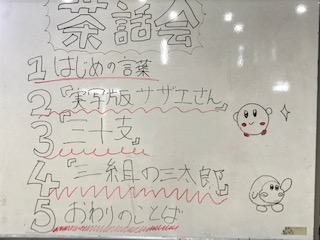 茶話会
1 はじめの言葉
2 『実写版 サザエさん』
3 『三十支』
4 『三組の三太郎』
5 おわりのことば